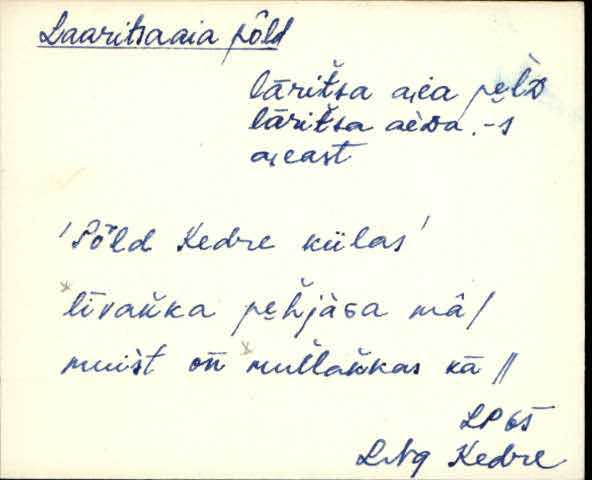 Laaritsaaia põld
lāritšа aia pe̮lᴅ
lāritšа aeᴅa, -s
aiеast
'Põld Kedre külas'
līvak̆ka pe̮h̆jàɢa mâ/
muist oñ mul̆lak̆kas kā //
LP 65
LNg Kedre